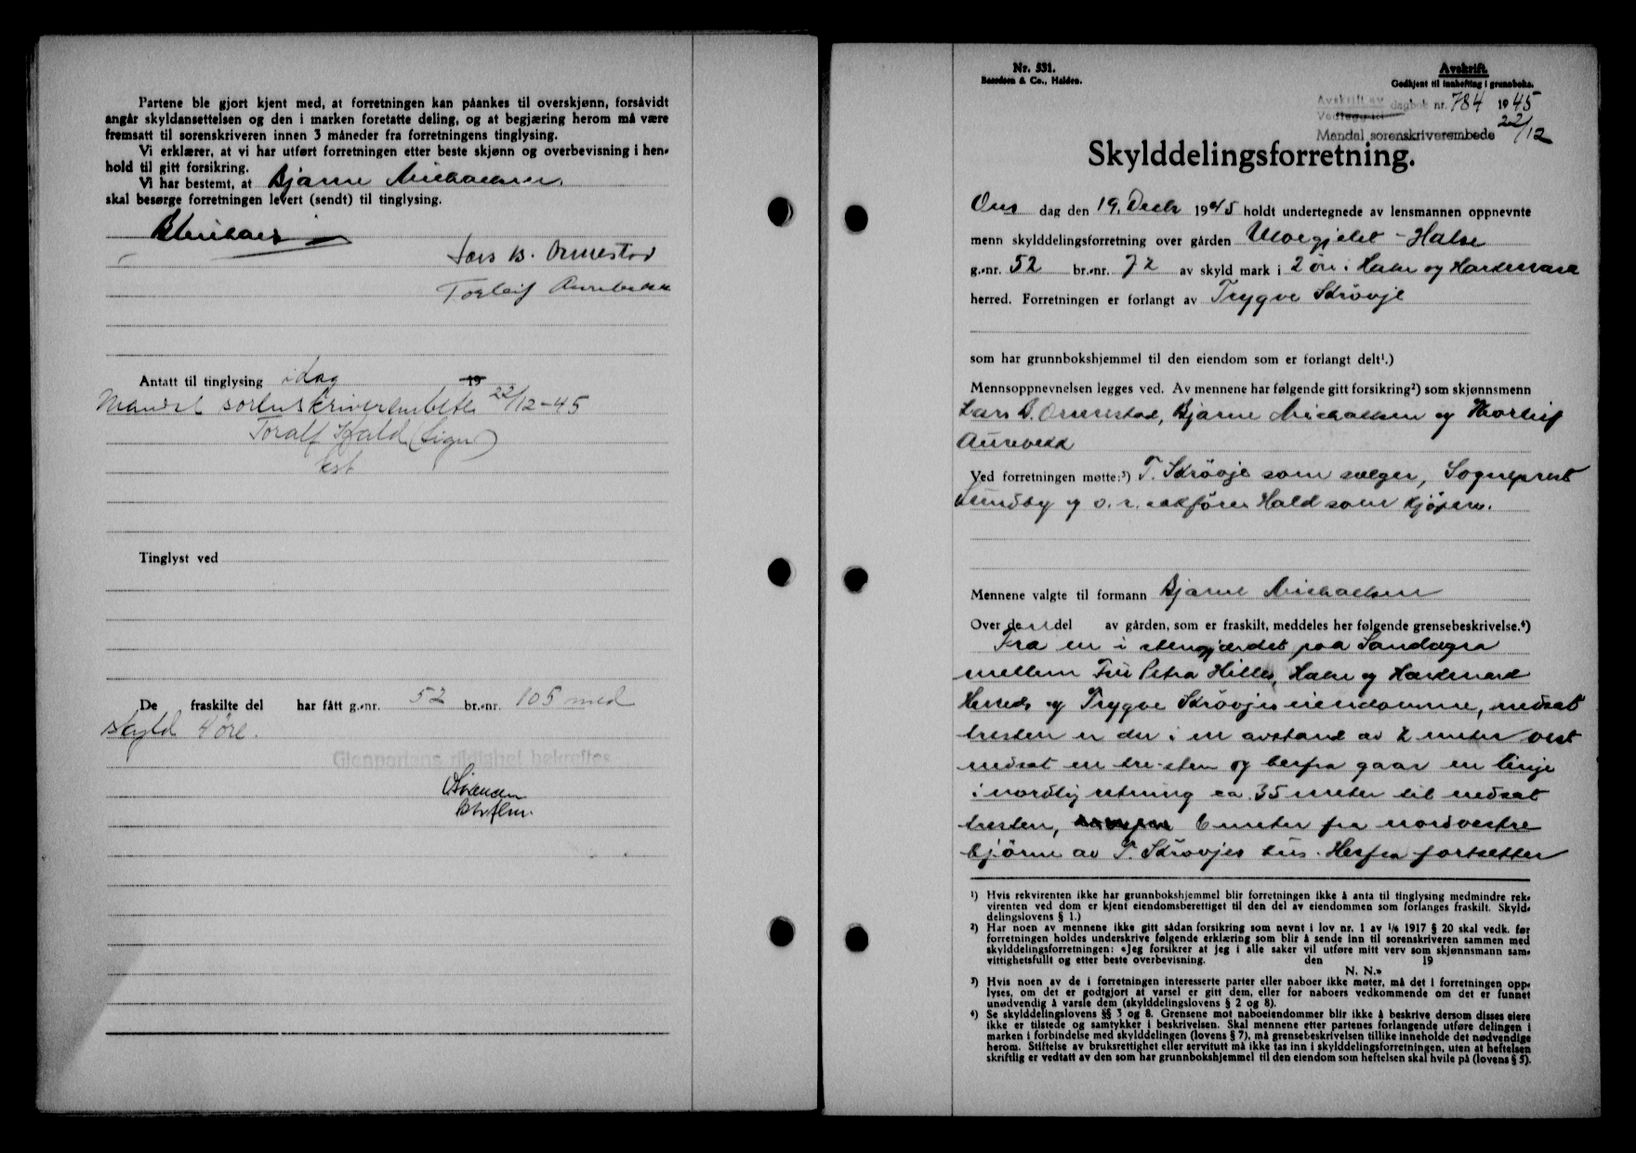 Partene ble gjort kjent med, at forretningen kan påankes til overskjønn, forsåvidt
angår skyldansettelsen og den i marken foretatte deling, og at begjæring herom må være
fremsatt til sorenskriveren innen 3 måneder fra forretningens tinglysing.
Vi erklærer, at vi har utført forretningen etter beste skjønn og overbevisning i hen-
hold til gitt forsikring.
Vi har bestemt, at Bjarne Michaelsen
skal besørge forretningen levert (sendt) til tinglysing.
Lars B. Ormestad
Torleif Aurebekk
Antatt til tinglysing idag 19
Mandal sorenskriverembete 22/12-45
Toralf Hald (sign)
kst
Tinglyst ved
De fraskilte del har fått g.-nr. 52 br.-nr. 105 med
skyld 4 øre.
Gjenpartens riktighet bekreftes
Nr. 531.
Bassøen & Co., Halden.
Avskrift.
Godkjent til innhefting i grunnboka.
Avskrift av dagbok nr. 784 1945
Vedlegg til
Mandal sorenskriverembede 22/12
Skylddelingsforretning.
Ons dag den 19. Decbr 1945 holdt undertegnede av lensmannen oppnevnte
menn skylddelingsforretning over gården Moegjelet - Halse
g.-nr. 52 br.-nr. 72 av skyld mark i 2 øre i Halse og Harkmark
herred. Forretningen er forlangt av Trygve Skrövje
som har grunnbokshjemmel til den eiendom som er forlangt delt¹.)
Mennsoppnevnelsen legges ved. Av mennene har følgende gitt forsikring²) som skjønnsmenn
Lars B. Ormestad, Bjarne Michaelsen og Thorleif
Aurebekk
Ved forretningen møtte:³) T. Skrövje som sælger, Sogneprest
Sundby og o. r. sakfører Hald som kjøpere.
Mennene valgte til formann Bjarne Michaelsen
Over den del av gården, som er fraskilt, meddeles her følgende grensebeskrivelse.⁴)
Fra en i stengjærdet paa Sandøgra
mellem Fru Petra Hilles, Halse og Harkmark
Herreds og Trygve Skrövjes eiendomme, nedsat
kresten er der i en avstand av 2 meter vest
nedsat en kre-sten og herfra gaar en linje
i nordlig retning ca. 35 meter til nedsat
kresten, 6 meter fra nordvestre
hjörne av T. Skrövjes hus. Herfra fortsetter
¹) Hvis rekvirenten ikke har grunnbokshjemmel blir forretningen ikke å anta til tinglysing medmindre rek-
virenten ved dom er kjent eiendomsberettiget til den del av eiendommen som forlanges fraskilt. Skyld-
delingslovens § 1.)
²) Har noen av mennene ikke gitt sådan forsikring som nevnt i lov nr. 1 av 1/6 1917 § 20 skal vedk. før
forretningen holdes underskrive følgende erklæring som blir å sende inn til sorenskriveren sammen med
skylddelingsforretningen: «Jeg forsikrer at jeg i alle saker vil utføre mitt verv som skjønnsmann sam-
vittighetsfullt og etter beste overbevisning. den 19
N. N.»
³) Hvis noen av de i forretningen interesserte parter eller naboer ikke møter, må det i forretningen opp-
lyses, om det er godtgjort at varsel er gitt dem, eller for naboers vedkommende om det er funnet
unødvendig å varsle dem (skylddelingslovens § 2 og 8).
⁴) Se skylddelingslovens §§ 3 og 8. Grensene mot naboeiendommer blir ikke å beskrive dersom disses eiere
ikke er tilstede og samtykker i beskrivelsen. Skal mennene etter partenes forlangende utføre delingen i
marken i forbindelse med skylddelingen (lovens § 7), må grensebeskrivelsen tillike inneholde det nødvendige
herom. Stiftelse av bruksrettighet eller servitutt må ikke tas inn i skylddelingsforretningen, uten at heftelsen
skriftlig er vedtatt av den som har grunnbokshjemmel til den eiendom som heftelsen skal hvile på (lovens § 5).